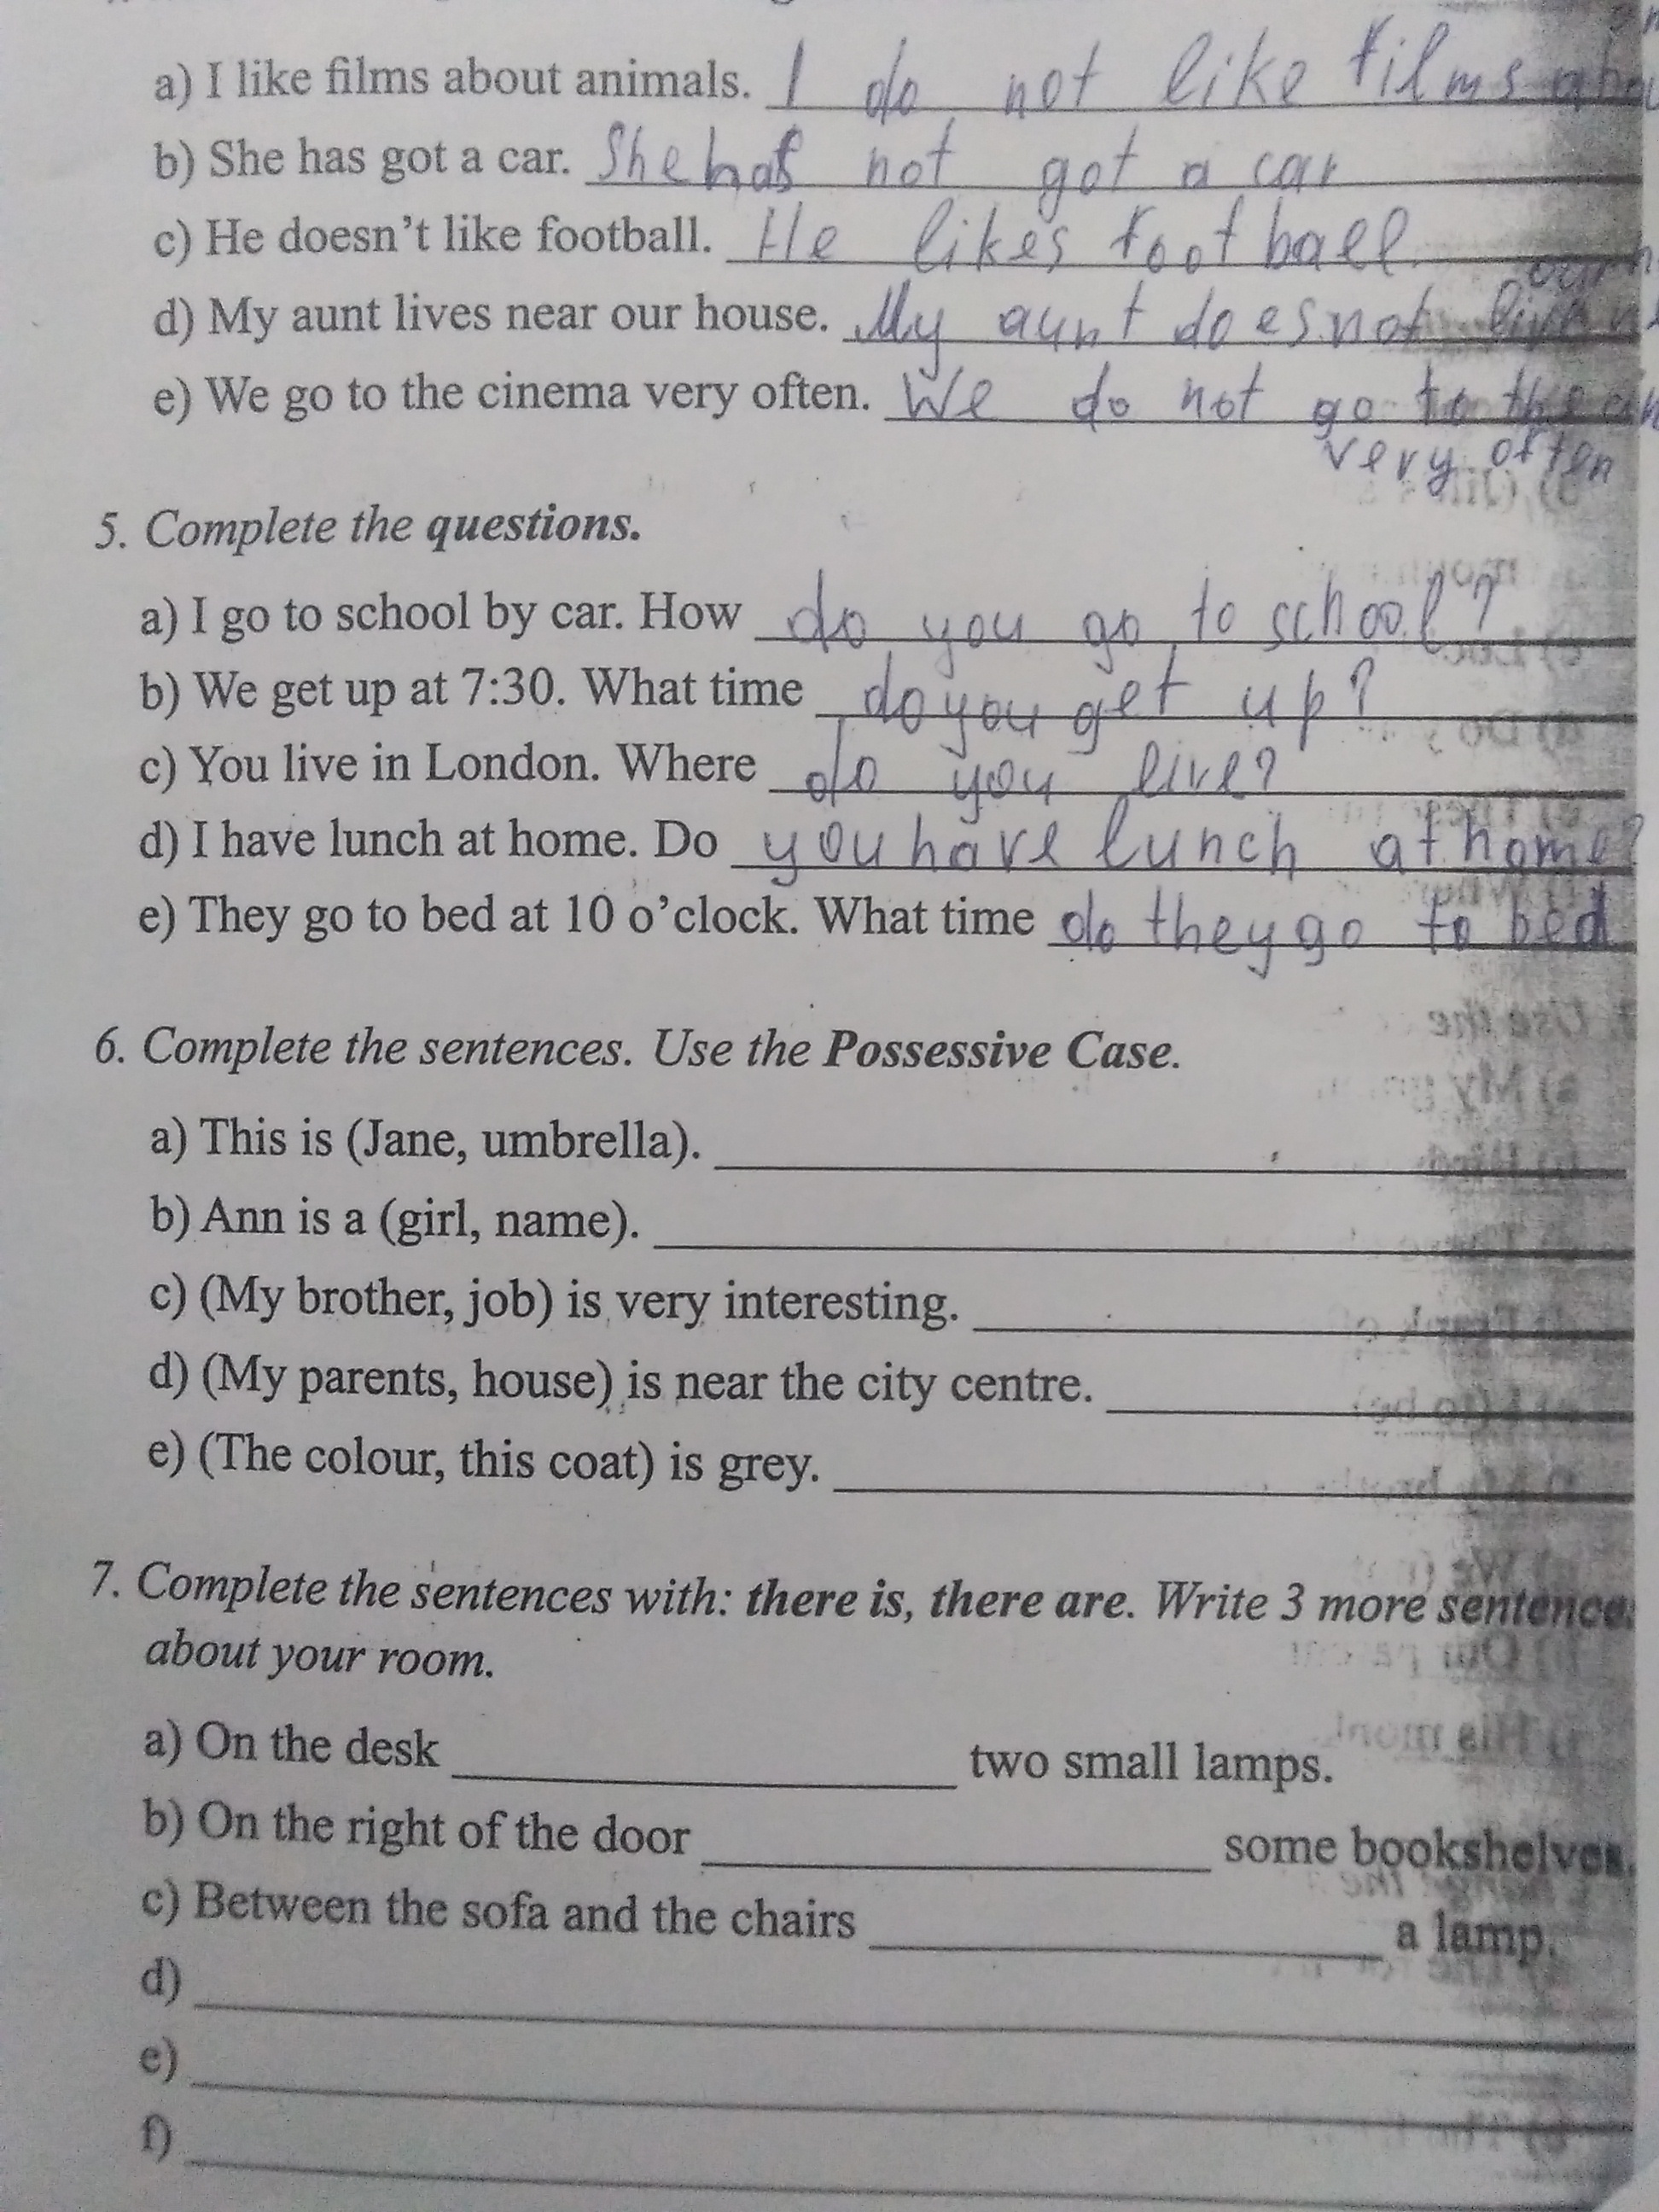 a) I like films about animals. I do not like films
b) She has got a car. She has not got a car
c) He doesn't like football. He likes football.
d) My aunt lives near our house. My aunt does not live our
e) We go to the cinema very often. We do not go to the
very often
5. Complete the questions.
a) I go to school by car. How do you go to school?
b) We get up at 7:30. What time do you get up?
c) You live in London. Where do you live?
d) I have lunch at home. Do you have lunch at home?
e) They go to bed at 10 o'clock. What time do they go to bed
6. Complete the sentences. Use the Possessive Case.
a) This is (Jane, umbrella).
b) Ann is a (girl, name).
c) (My brother, job) is very interesting.
d) (My parents, house) is near the city centre.
e) (The colour, this coat) is grey.
7. Complete the sentences with: there is, there are. Write 3 more sentences
about your room.
a) On the desk two small lamps.
b) On the right of the door some bookshelves.
c) Between the sofa and the chairs a lamp.
d)
e)
f)